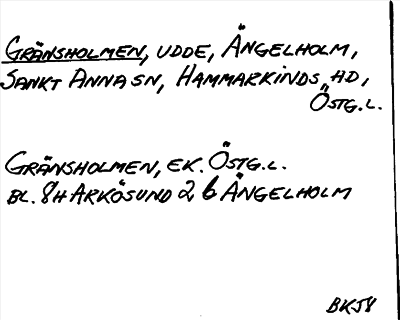 GRÄNSHOLMEN, UDDE, ÄNGELHOLM,
SANKT ANNA SN, HAMMARKINDS HD,
ÖSTG.L.
GRÄNSHOLMEN, EK. ÖSTG.L.
BL. 8H ARKÖSUND 2 b ÄNGELHOLM
BKJ8